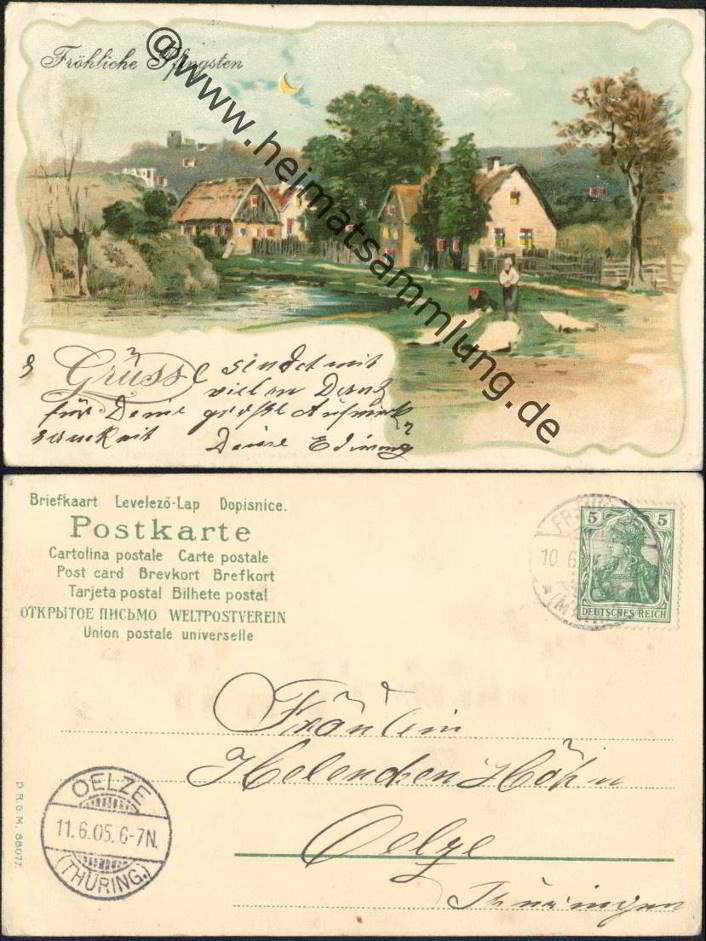 Fröhliche Pfingsten
@www.heimatsammlung.de
Grüsse sendet mit
vielen Dank
für Deine große Aufmerk
samkeit Deine
Briefkaart Levelező-Lap Dopisnice.
Postkarte
Cartolina postale Carte postale
Post card Brevkort Brefkort
Tarjeta postal Bilhete postal
ОТКРЫТОЕ ПИСЬМО WELTPOSTVEREIN
Union postale universelle
5 5
DEUTSCHES REICH
10.6
Fräulein
Helenchen Höhn
Oelze
Thüringen
OELZE
11.6.05.6-7N.
(THÜRING.)
D.R.G.M. 88077.